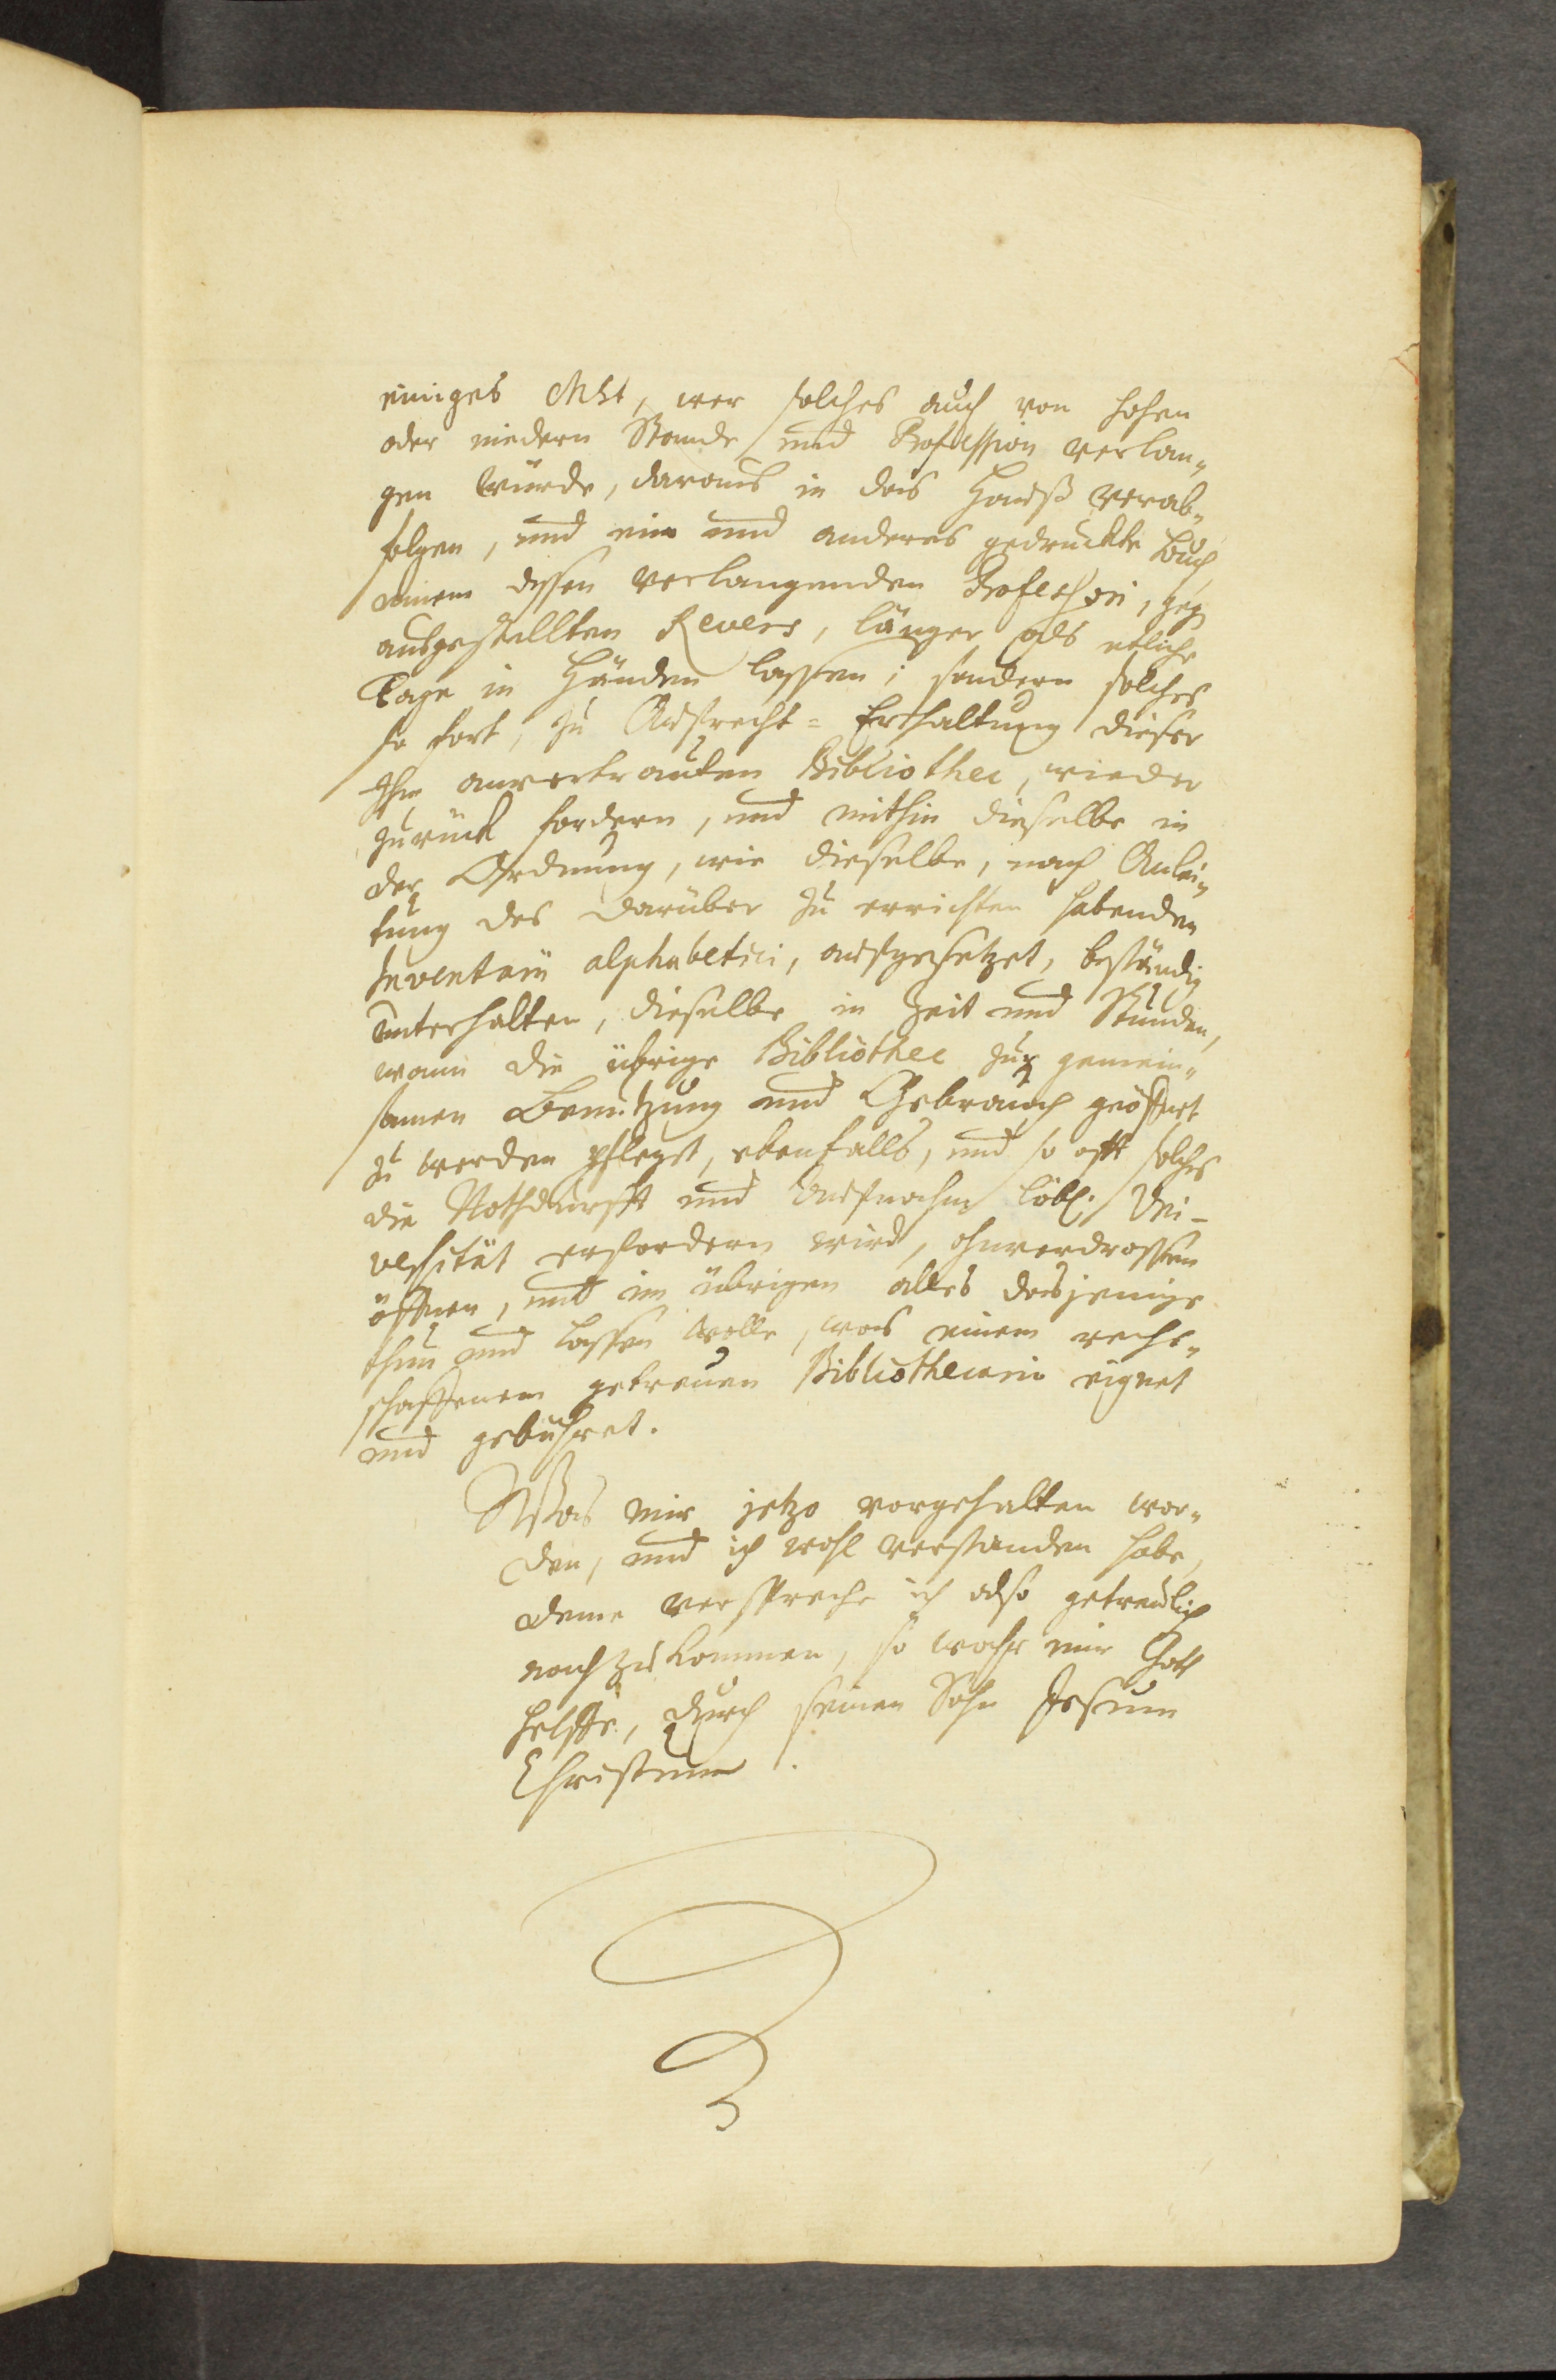 einiges MSt, wer solches auch von hohen
oder niedern Stande und Profession verlan„
gen würde, daraus in das Hauß verab„
folgen, und ein und anderes gedruckte Buch
einem dessen verlangenden Professori, geg
ausgestellten Revers, länger als etliche
Tage in Händen lassen; sondern solches
so fort, zu Aufrecht=Erhaltung dieser
Ihm anvertrauten Bibliothec, wieder
zurück fordern, und mithin dieselbe in
der Ordnung, wie dieselbe, nach Anlei„
tung des darüber zu errichten habenden
Inventarii alphabetici, aufgesetzet, beständig
unterhalten, dieselbe in Zeit und Stunden,
wann die übrige Bibliothec zur gemein„
samen Benutzung und Gebrauch geöffnet
zu werden pfleget, ebenfalls, und so offt solches
die Nothdurfft und Aufnahm löbl. Uni-
versität erfordern wird, ohnverdrossen
öffnen, und im übrigen alles dasjenige
thun und lassen wolle, was einem recht„
schaffenem getreuen Bibliothecario eignet
und gebühret.
Was mir jetzo vorgehalten wor„
den, und ich wohl verstanden habe,
deme verspreche ich also getreulich
nachzukommen, so wahr mir Gott
helffe, durch seinen Sohn Jesum
Christum.